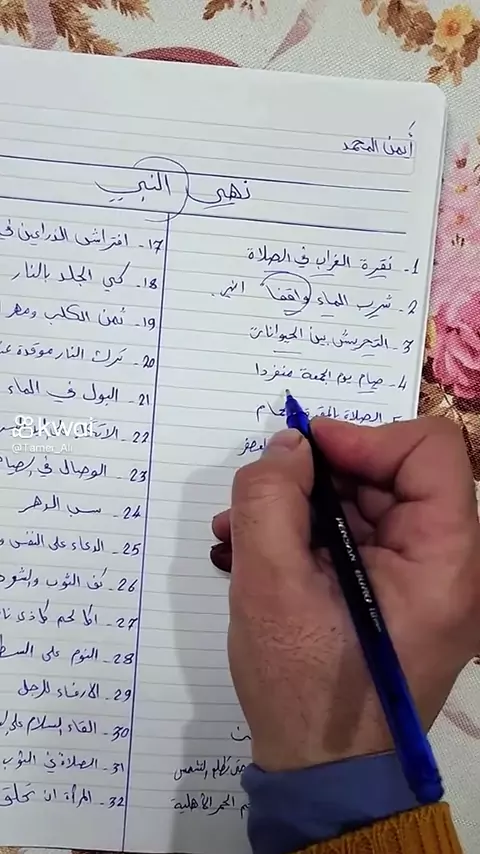 أيمن المحمد
نهى النبي
1- نقرة الغراب في الصلاة
2- شرب الماء واقفا
3- التحريش بين الحيوانات
4- صيام يوم الجمعة منفردا
5- الصلاة
حتى تطلع الشمس
الحمر الأهلية
17- افتراش الذراعين في
18- كي الجلد بالنار
19- ثمن الكلب ومهر
20- ترك النار موقدة
21- البول في الماء
22-
23- الوصال في
24- سب الدهر
25- الدعاء على النفس و
26- كف الثوب والشعر
27- اكل لحم كل ذي
28- النوم على
29- للرجل
30- القاء السلام على
31- الصلاة في الثوب
32- المرأة ان تحلق
kwai
@Tamer_Ali
PENSAN